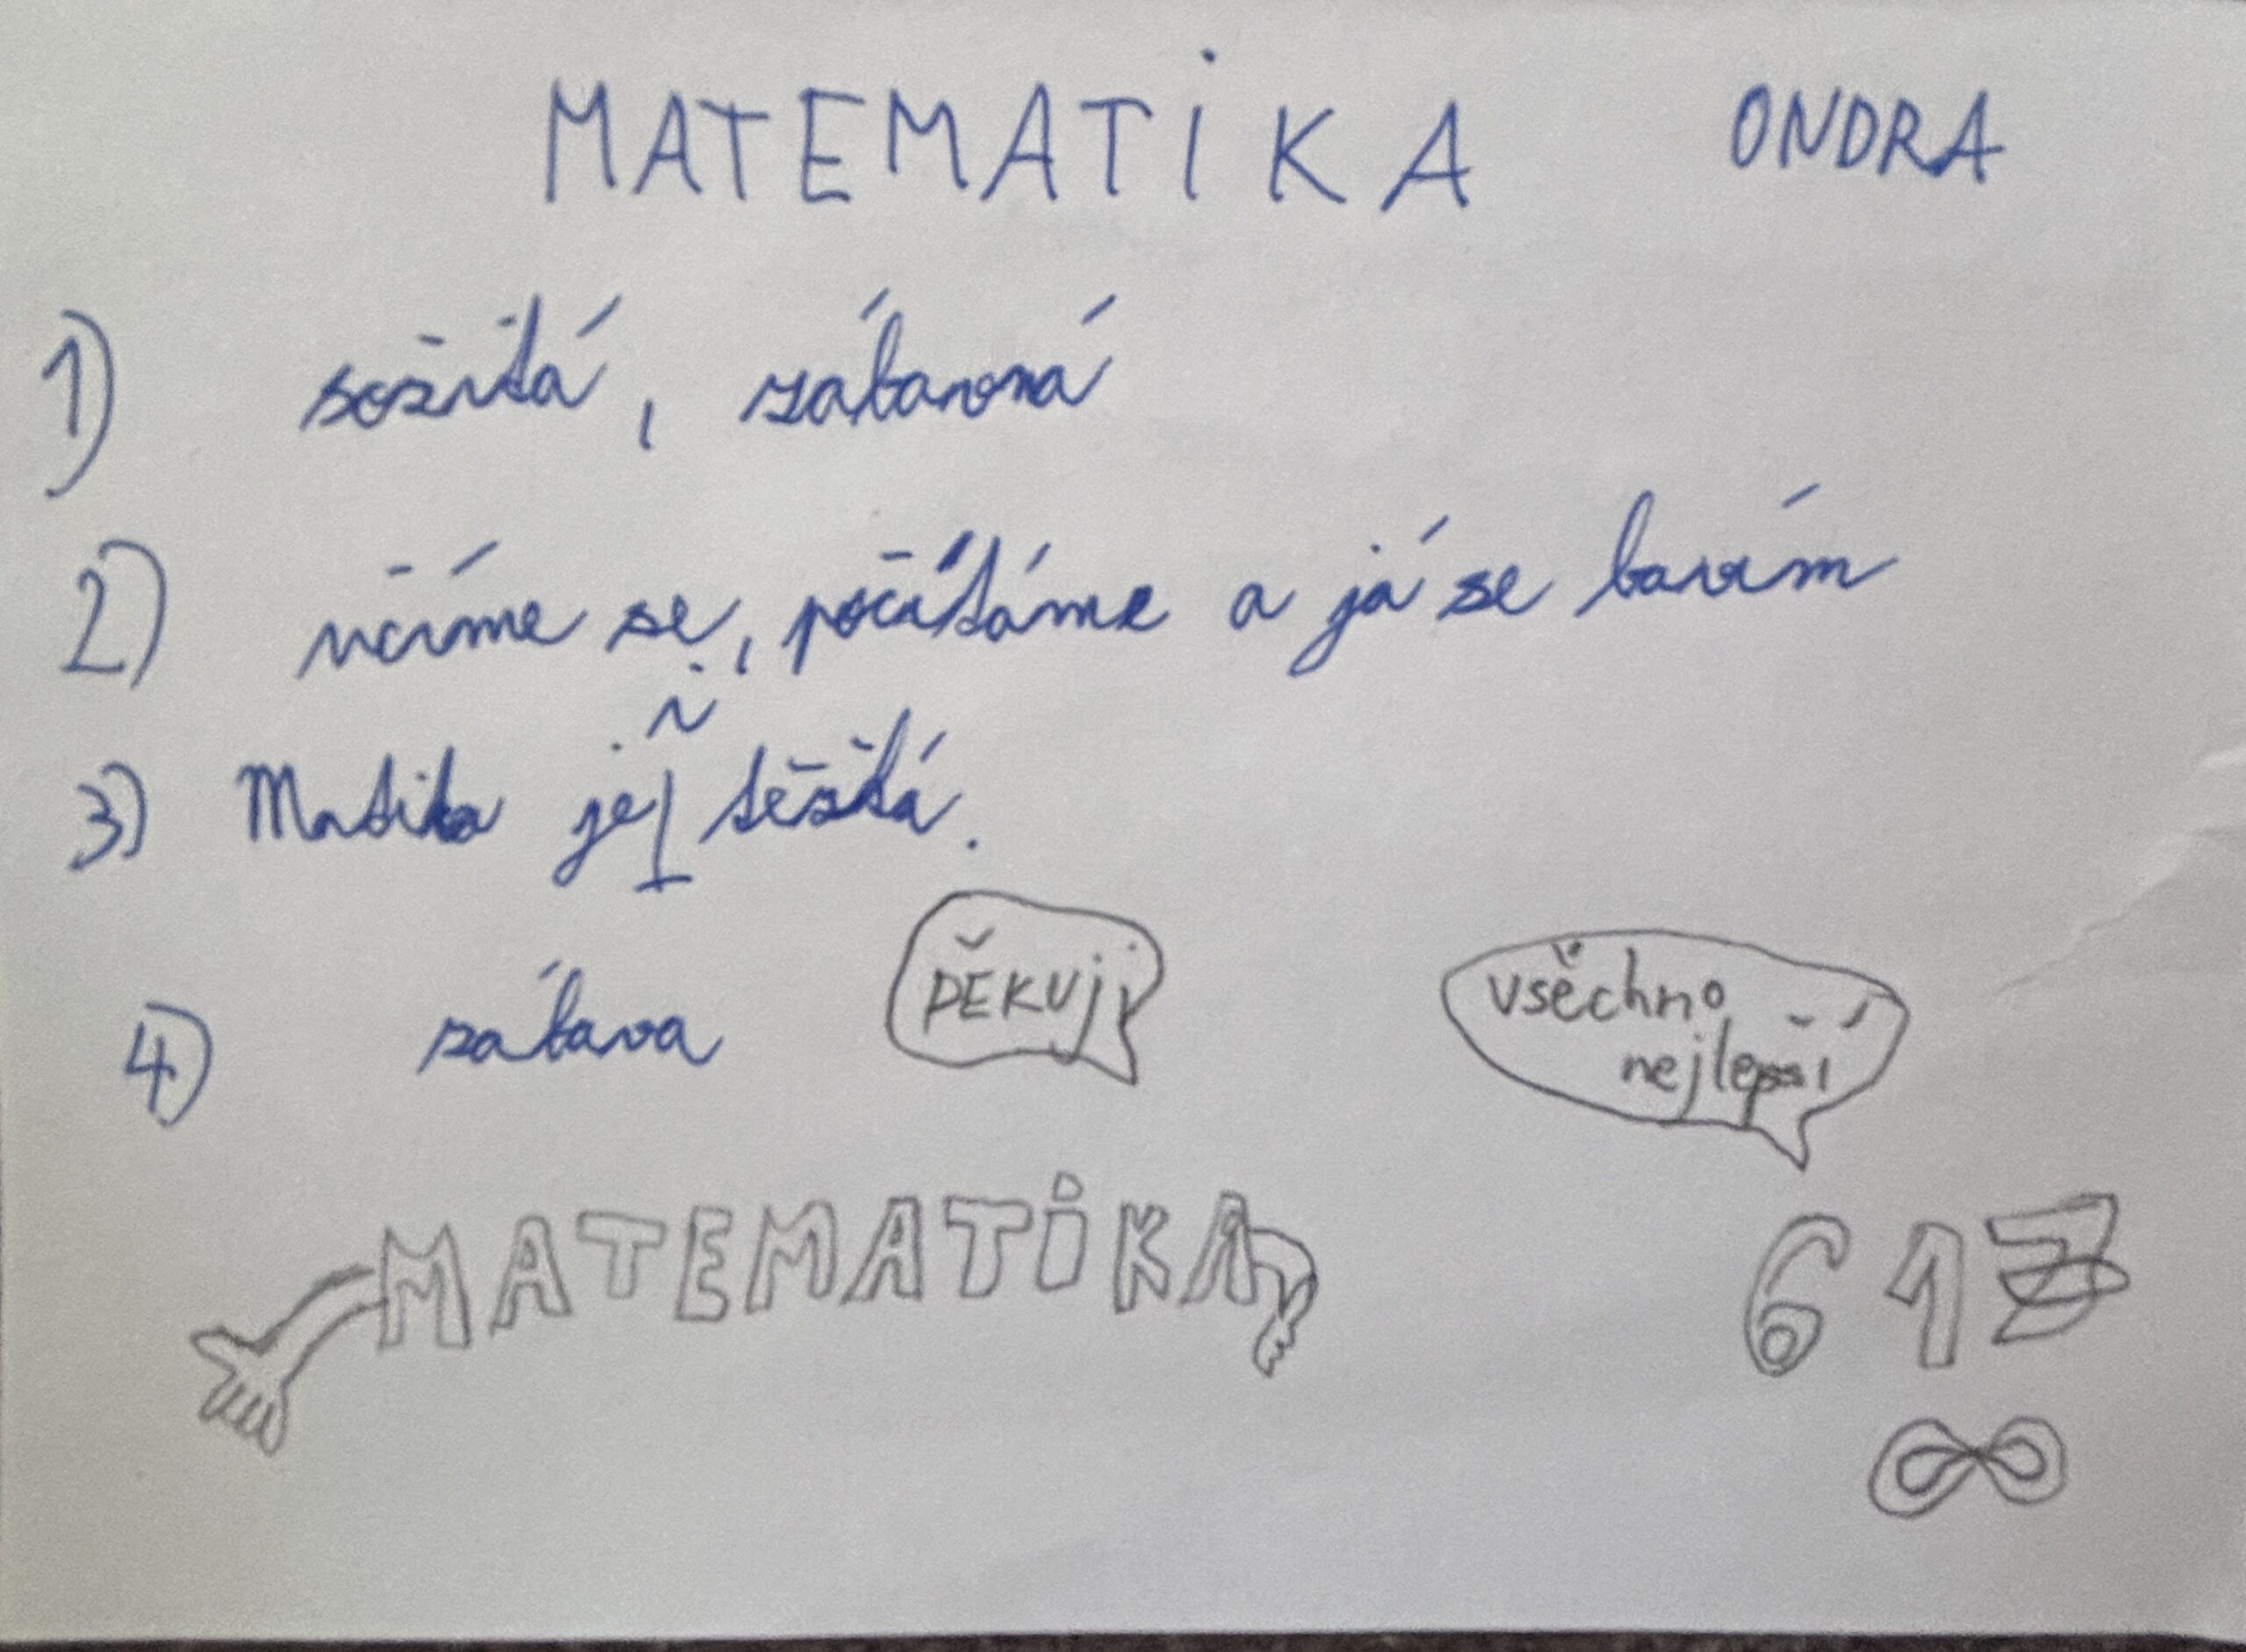 MATEMATIKA ONDRA
1) sožitá, zábavná
2) učíme se, počítáme a já se bavím
3) Matika je i těžká.
4) zábava
DĚKUJI
všechno
nejlepší
MATEMATIKA
6 1
∞